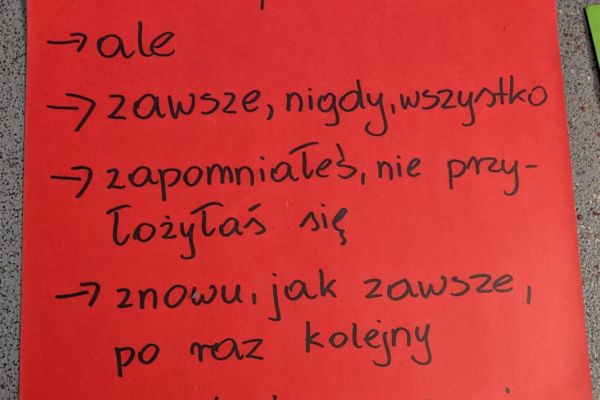 → ale
→ zawsze, nigdy, wszystko
→ zapomniałeś, nie przy-
łożyłaś się
→ znowu, jak zawsze,
po raz kolejny